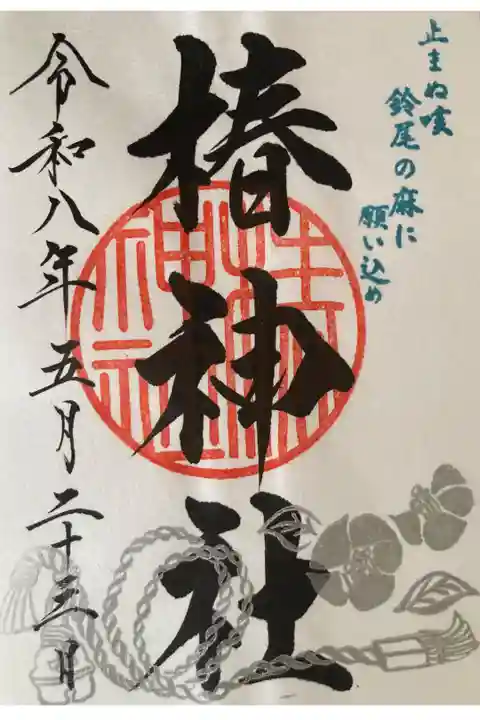 止まぬ咳
鈴尾の麻に
願い込め
椿神社
令和八年五月二十三日